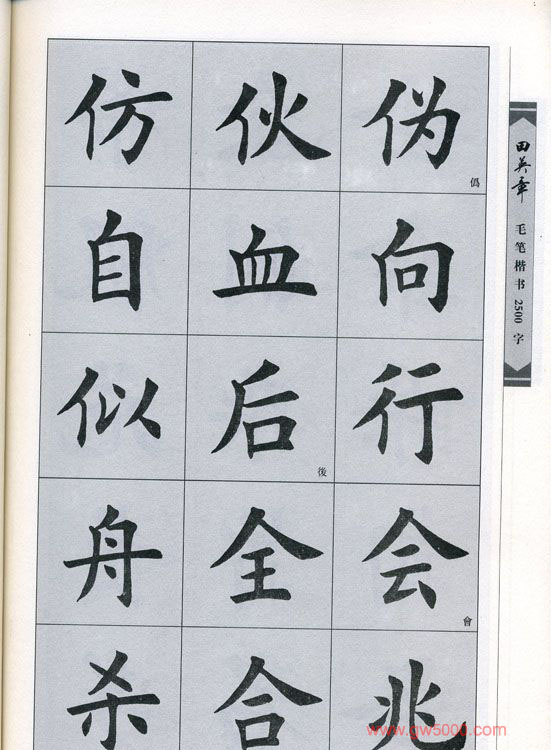 仿伙伪
僞
自血向
似后行
後
舟全会
會
杀合兆
田英章
毛笔楷书2500字
www.gw5000.com